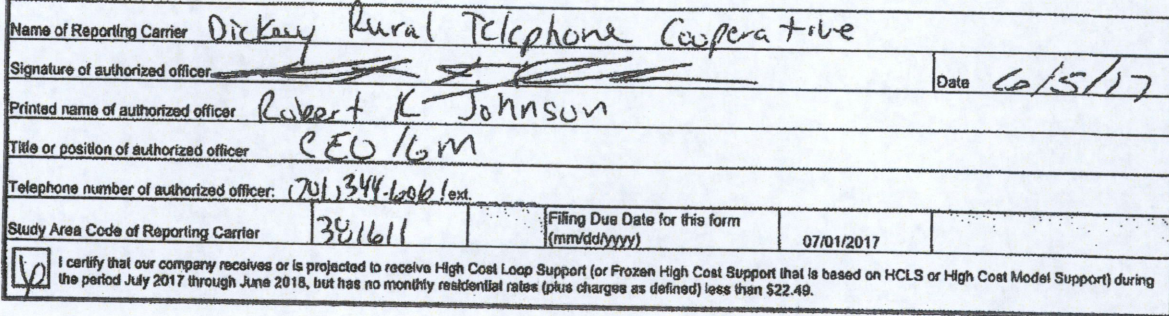 Name of Reporting Carrier Dickey Rural Telephone Cooperative
Signature of authorized officer Date 6/5/17
Printed name of authorized officer Robert K Johnson
Title or position of authorized officer CEO/GM
Telephone number of authorized officer: (701) 344- ext.
Study Area Code of Reporting Carrier 381611 Filing Due Date for this form
(mm/dd/yyyy) 07/01/2017
I certify that our company receives or is projected to receive High Cost Loop Support (or Frozen High Cost Support that is based on HCLS or High Cost Model Support) during
the period July 2017 through June 2018, but has no monthly residential rates (plus charges as defined) less than $22.49.